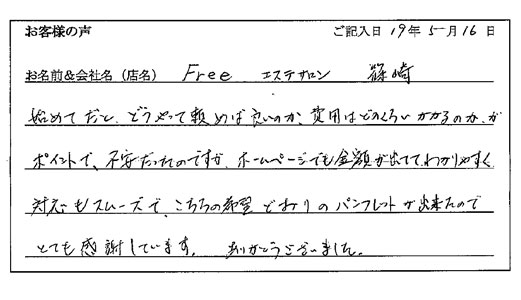 お客様の声 ご記入日 19年5月16日
お名前&会社名（店名） Free エステサロン 篠崎
始めてだと、どうやって頼めば良いのか、費用はどのくらいかかるのか、が
ポイントで、不安だったのですが、ホームページでも金額が出ててわかりやすく
対応もスムーズで、こちらの希望どおりのパンフレットが出来たので
とても感謝しています。 ありがとうございました。